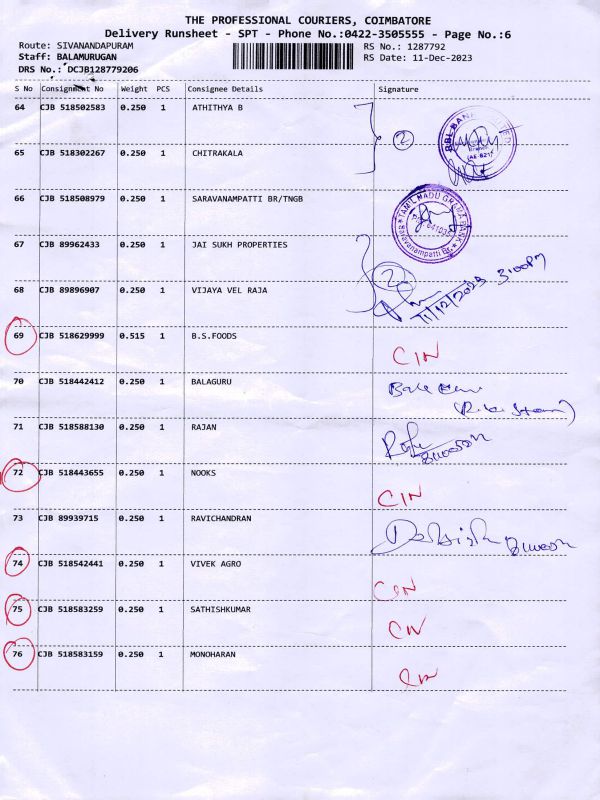 THE PROFESSIONAL COURIERS, COIMBATORE
Delivery Runsheet - SPT - Phone No.:0422-3505555 - Page No.:6
Route: SIVANANDAPURAM RS No.: 1287792
Staff: BALAMURUGAN RS Date: 11-Dec-2023
DRS No.: DCJB128779206
S No Consignment No Weight PCS Consignee Details Signature
64 CJB 518502583 0.250 1 ATHITHYA B
2
65 CJB 518302267 0.250 1 CHITRAKALA
66 CJB 518508979 0.250 1 SARAVANAMPATTI BR/TNGB
TAMIL NADU GRAMA BANK
Saravanampatti Br.
67 CJB 89962433 0.250 1 JAI SUKH PROPERTIES
2
68 CJB 89896907 0.250 1 VIJAYA VEL RAJA
11/12/2023 3:00PM
69 CJB 518629999 0.515 1 B.S.FOODS CIN
70 CJB 518442412 0.250 1 BALAGURU
71 CJB 518588130 0.250 1 RAJAN
72 CJB 518443655 0.250 1 NOOKS CIN
73 CJB 89939715 0.250 1 RAVICHANDRAN
74 CJB 518542441 0.250 1 VIVEK AGRO CIN
75 CJB 518583259 0.250 1 SATHISHKUMAR CIN
76 CJB 518583159 0.250 1 MONOHARAN CIN